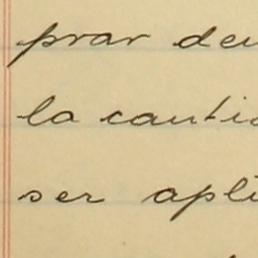 prar den
la cantid
ser apli